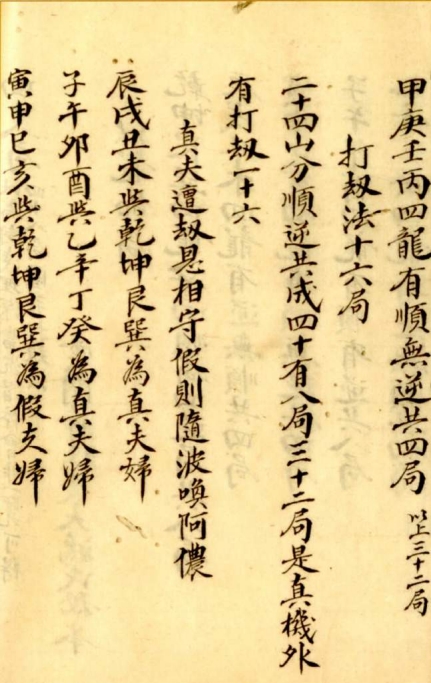 甲庚壬丙四龍有順無逆共四局 以上三十二局
打刼法十六局
二十四山分順逆共成四十有八局三十二局是真機外
有打刼一十六
真夫遭刼思相守假則隨波喚阿儂
辰戌丑未與乾坤艮巽為真夫婦
子午卯酉與乙辛丁癸為真夫婦
寅申巳亥與乾坤艮巽為假夫婦